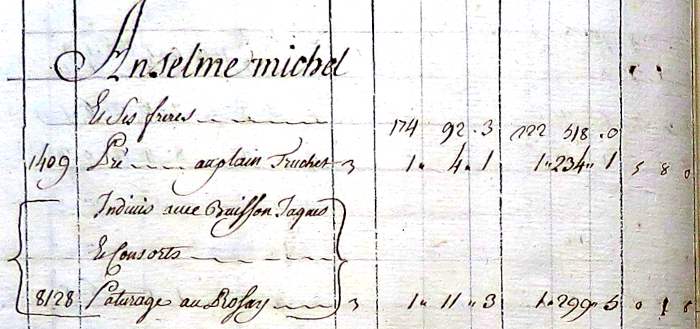 Anselme michel
& Ses freres 174 92 . 3 122 518 . 0
1409 Pré au plain Truchet 3 1 " 4 . 1 1 " 234 " 1 5 8 0
Indivis avec Buisson Jaques
& Consorts
8128 Paturage au Rosay 3 1 " 11 " 3 1 " 299 " 5 0 1 8